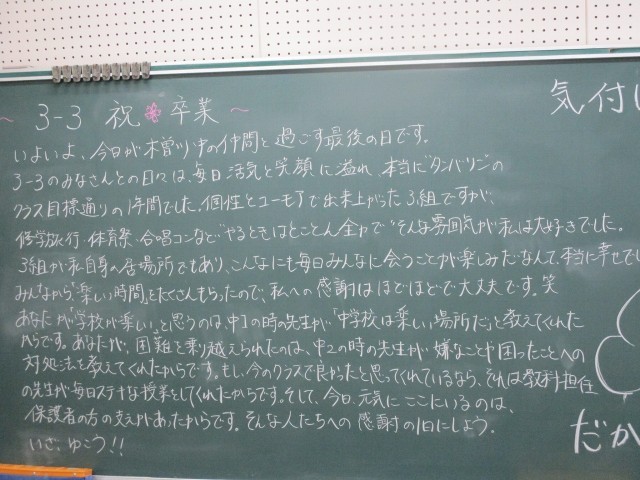 ~ 3-3 祝 卒業 ~
いよいよ、今日が木曽川中の仲間と過ごす最後の日です。
3-3のみなさんとの日々は、毎日活気と笑顔に溢れ、本当に"タンバリン"の
クラス目標通りの1年間でした。個性とユーモアで出来上がった3組ですが、
修学旅行・体育祭・合唱コンなど"やるときはとことん全力で"そんな雰囲気が私は大好きでした。
3組が私自身の居場所でもあり、こんなにも毎日みんなに会うことが楽しみだなんて、本当に幸せでし
みんなから、"楽しい時間"をたくさんもらったので、私への感謝はほどほどで大丈夫です。笑
あなたが「学校が楽しい」と思うのは、中1の時の先生が「中学校は楽しい場所だ」と教えてくれた
からです。あなたが、困難を乗り越えられたのは、中2の時の先生が嫌なことや困ったことへの
対処法を教えてくれたからです。もし、今のクラスで良かったと思ってくれているなら、それは教科担任
の先生が毎日ステキな授業をしてくれたからです。そして、今日、元気にここにいるのは、
保護者の方の支えがあったからです。そんな人たちへの感謝の1日にしよう。
いざ、ゆこう!!
気付い
だか